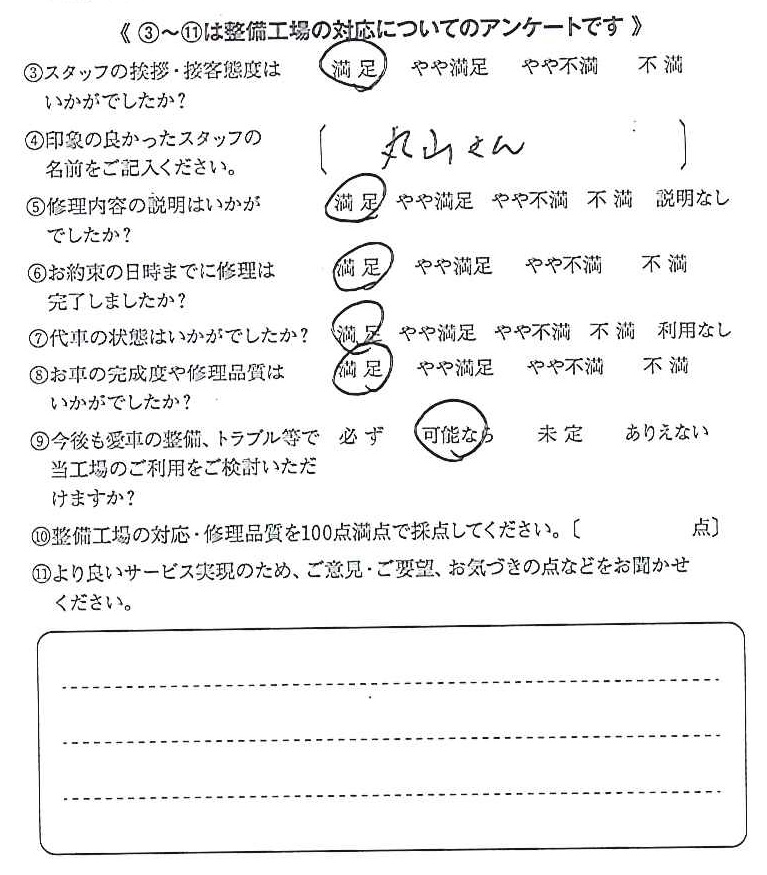 《 ③〜⑪は整備工場の対応についてのアンケートです 》
③スタッフの挨拶・接客態度は 満 足 やや満足 やや不満 不 満
いかがでしたか?
④印象の良かったスタッフの 〔 丸山さん 〕
名前をご記入ください。
⑤修理内容の説明はいかが 満 足 やや満足 やや不満 不 満 説明なし
でしたか?
⑥お約束の日時までに修理は 満 足 やや満足 やや不満 不 満
完了しましたか?
⑦代車の状態はいかがでしたか? 満 足 やや満足 やや不満 不 満 利用なし
⑧お車の完成度や修理品質は 満 足 やや満足 やや不満 不 満
いかがでしたか?
⑨今後も愛車の整備、トラブル等で 必 ず 可能なら 未 定 ありえない
当工場のご利用をご検討いただ
けますか?
⑩整備工場の対応・修理品質を100点満点で採点してください。〔 点〕
⑪より良いサービス実現のため、ご意見・ご要望、お気づきの点などをお聞かせ
ください。